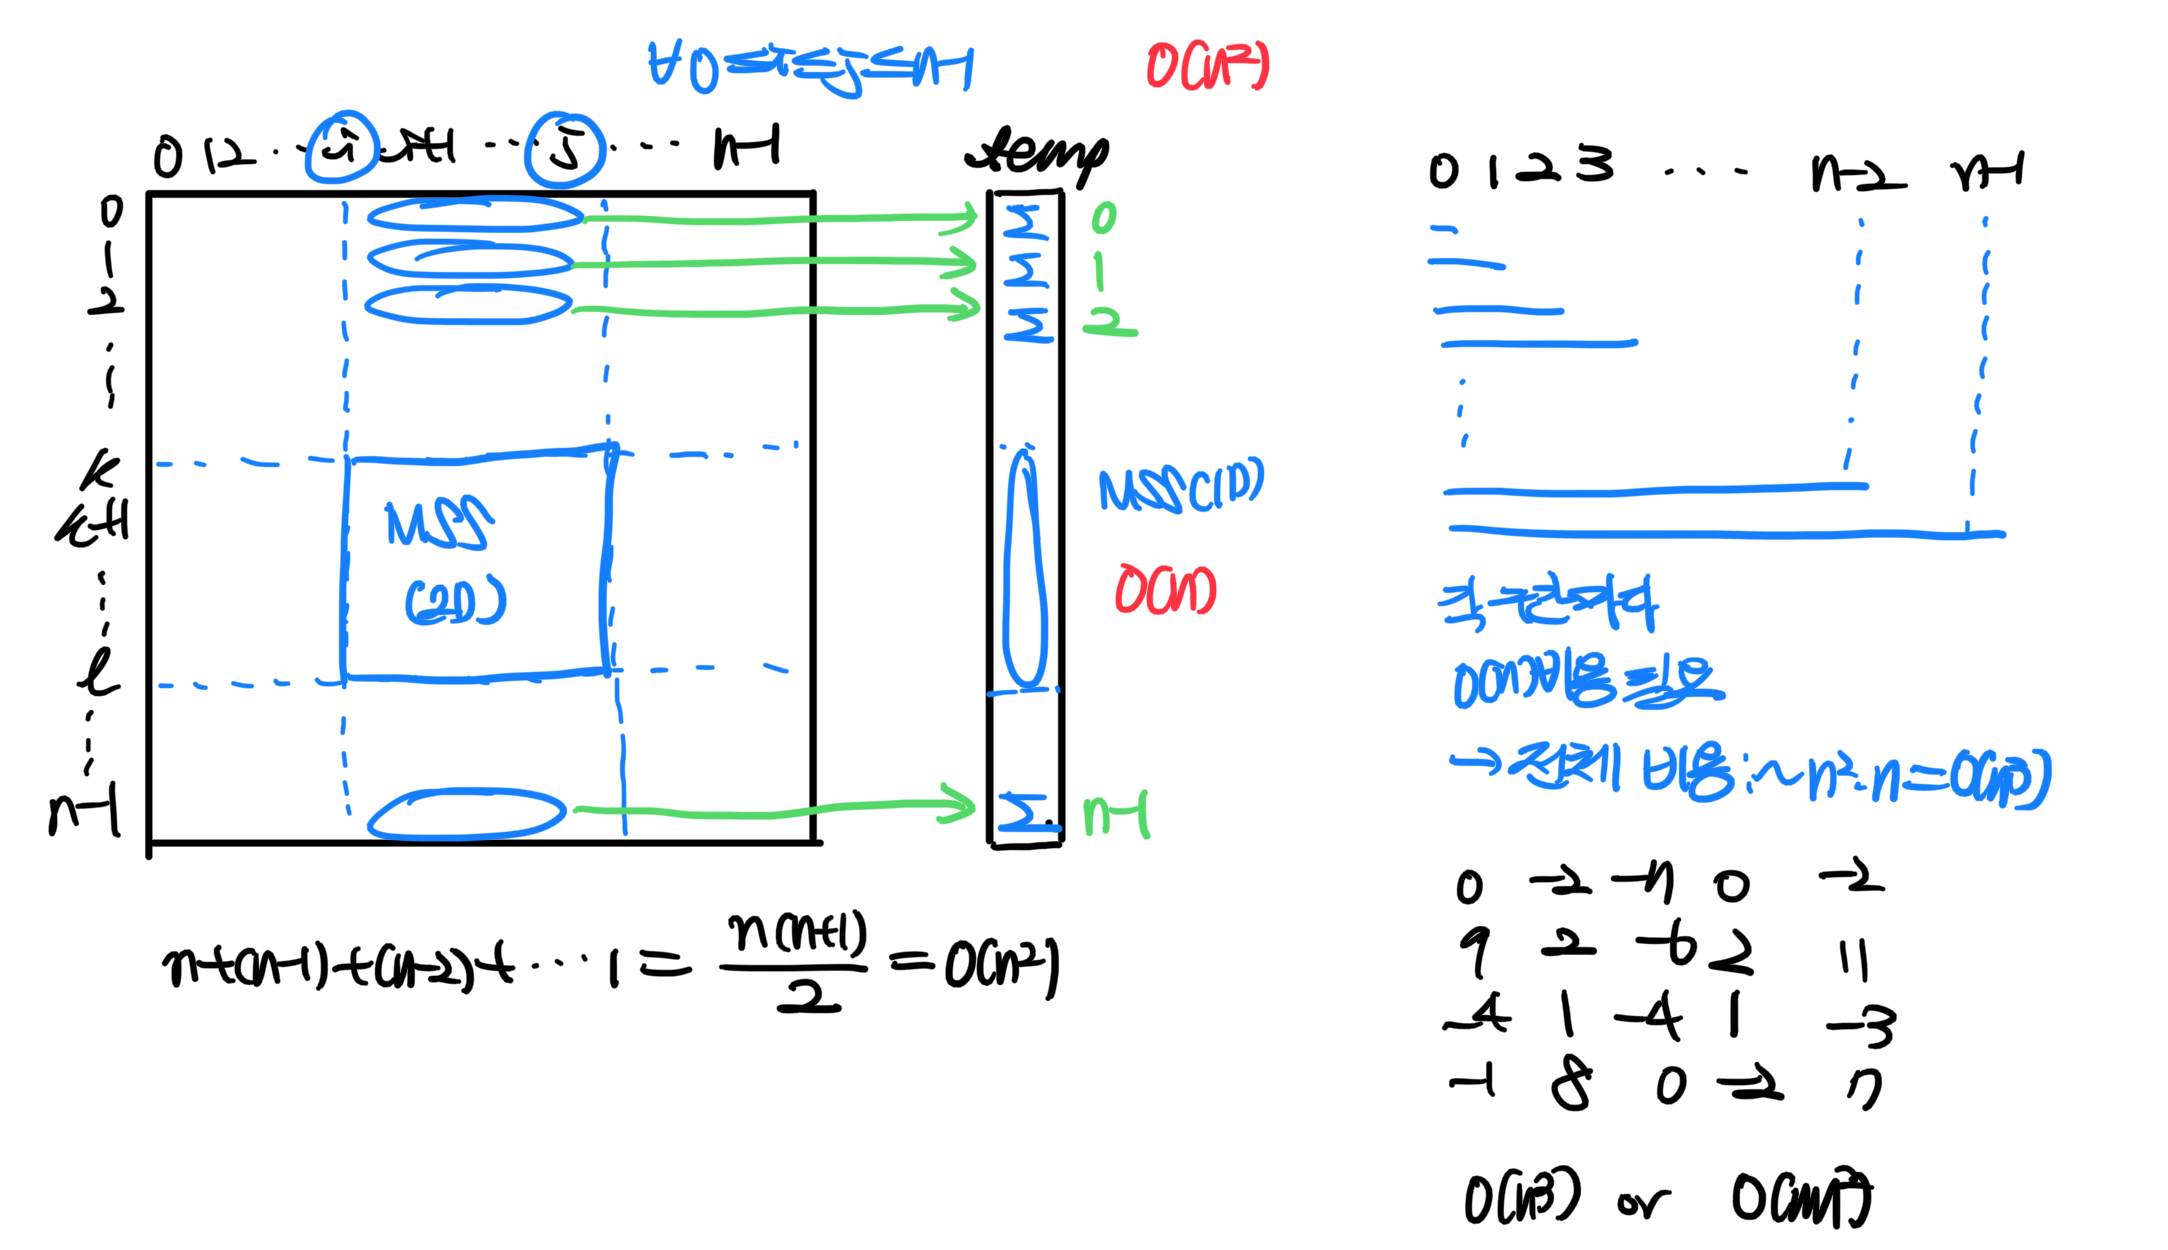 ∀ 0≤i≤j≤n-1
O(n²)
0 1 2 ··· i i+1 ··· j ··· n-1
temp
0
1
2
k
k+1
l
n-1
Σ 0
Σ 1
Σ 2
Σ n-1
MSS
(2D)
MSS(1D)
O(n)
n+(n-1)+(n-2)+ ··· 1 = n(n+1)/2 = O(n²)
0 1 2 3 ··· n-2 n-1
각 구간마다
O(n)비용 필요
→ 전체 비용:~n²·n=O(n³)
0 -2 -7 0 -2
9 2 -6 2 11
-4 1 -4 1 -3
-1 8 0 -2 7
O(n³) or O(mn²)